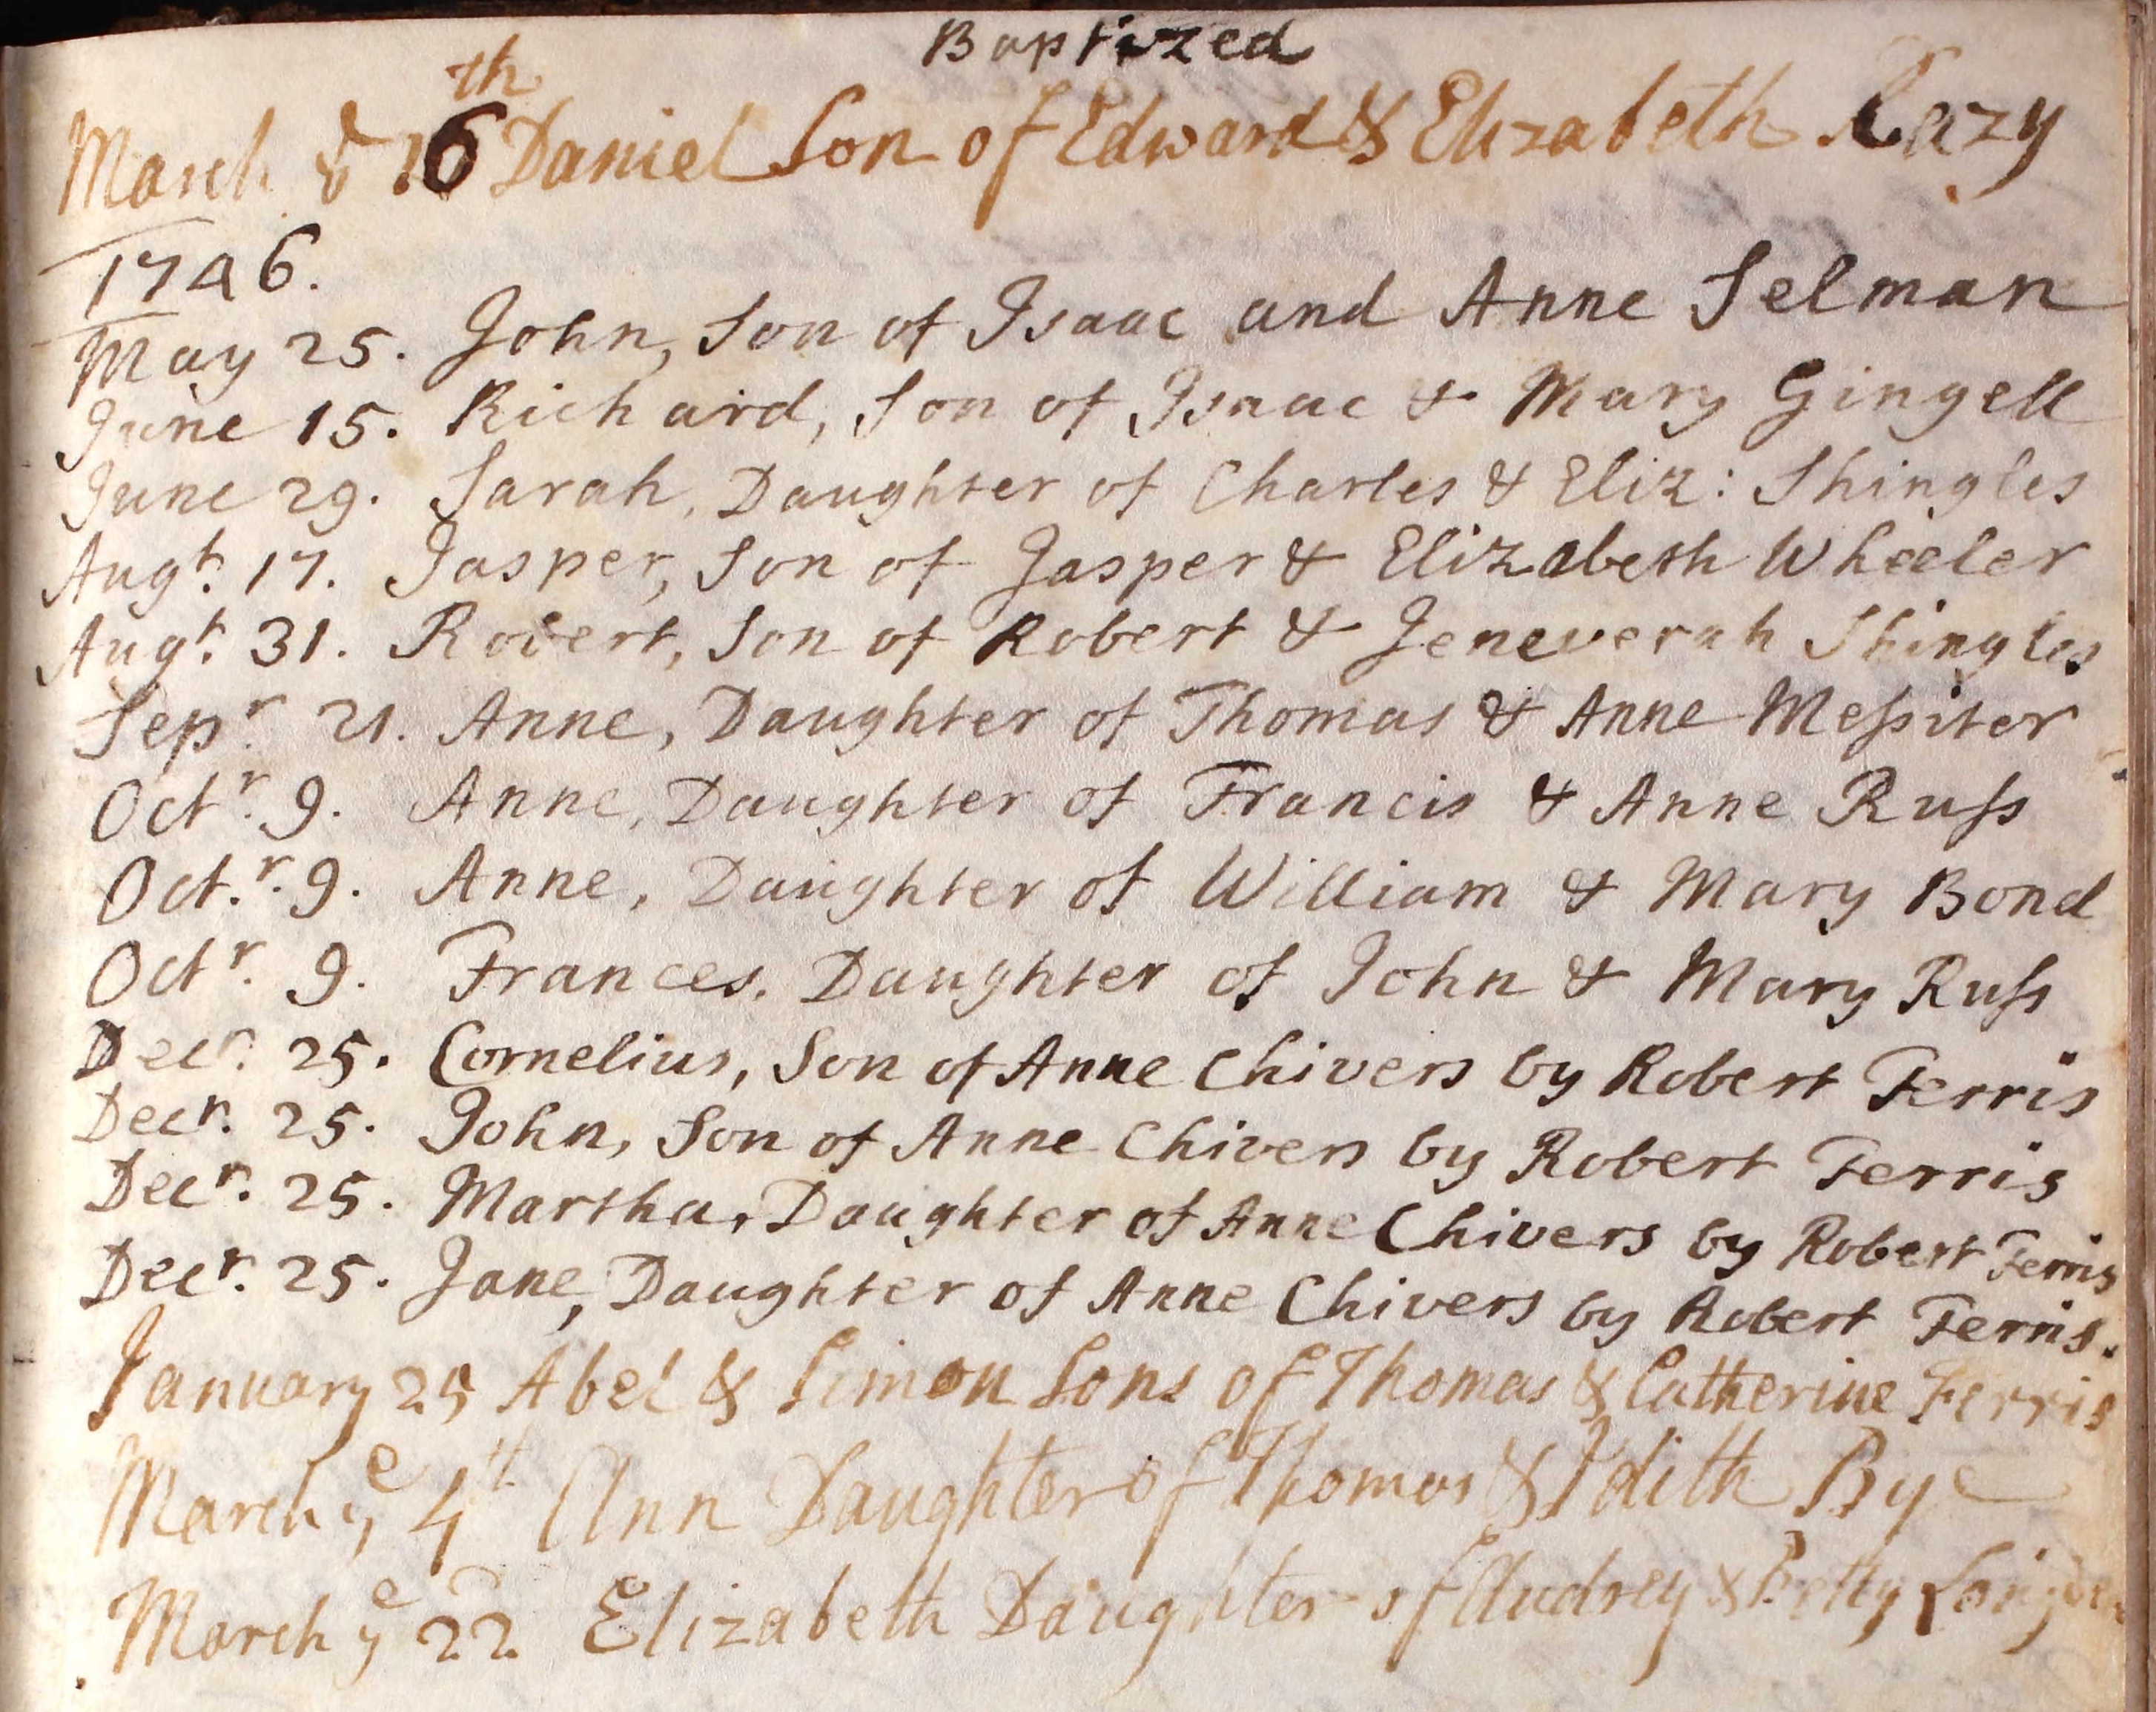 Baptized
March ye 16th Daniel Son of Edward & Elizabeth Lazy
1746.
May 25. John, Son of Isaac and Anne Selman
June 15. Richard, Son of Isaac & Mary Gingell
June 29. Sarah, Daughter of Charles & Eliz: Shingles
Augt. 17. Jasper, Son of Jasper & Elizabeth Wheeler
Augt. 31. Robert, Son of Robert & Jeneverah Shingles
Sepr. 21. Anne, Daughter of Thomas & Anne Meſsiter
Octr. 9. Anne, Daughter of Francis & Anne Ruſs
Oct.r. 9. Anne, Daughter of William & Mary Bond
Octr. 9. Frances, Daughter of John & Mary Ruſs
Decr. 25. Cornelius, Son of Anne Chivers by Robert Ferris
Decr. 25. John, Son of Anne Chivers by Robert Ferris
Decr. 25. Martha, Daughter of Anne Chivers by Robert Ferris
Decr. 25. Jane, Daughter of Anne Chivers by Robert Ferris.
January 25 Abel & Simon Sons of Thomas & Catherine Ferris
March ye 4th Ann Daughter of Thomas & Edith Bye
March ye 22 Elizabeth Daughter of Audrey & Betty